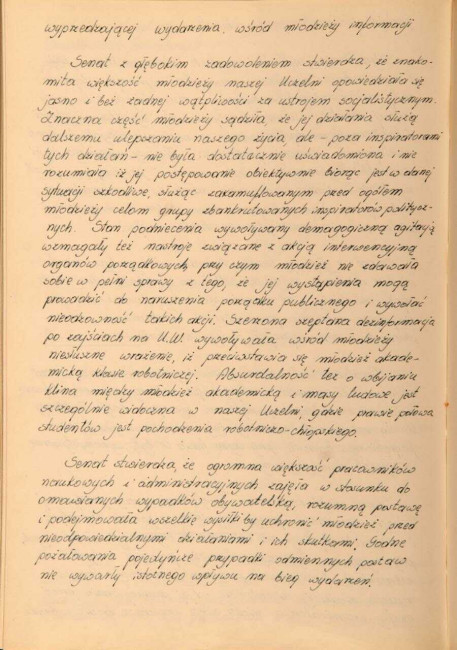 wyprzedzającej wydarzenia wśród młodzieży informacji
Senat z głębokim zadowoleniem stwierdza, że znako-
mita większość młodzieży naszej Uczelni opowiedziała się
jasno i bez żadnej wątpliwości za ustrojem socjalistycznym.
Znaczna część młodzieży sądziła, że jej działania służą
dalszemu ulepszaniu naszego życia, ale - poza inspiratorami
tych działań - nie była dostatecznie uświadomiona i nie
rozumiała iż jej postępowanie obiektywnie biorąc jest w danej
sytuacji szkodliwe, służąc zakamuflowanym przed ogółem
młodzieży celom grupy zbankrutowanych inspiratorów politycz-
nych. Stan podniecenia wywoływany demagogiczną agitacją
wzmagały też nastroje związane z akcją interwencyjną
organów porządkowych, przy czym młodzież nie zdawała
sobie w pełni sprawy z tego, że jej wystąpienia mogą
prowadzić do naruszenia porządku publicznego i wywołać
nieodzowność takich akcji. Szerzona szeptana dezinformacja
po zajściach na U.W. wywoływała wśród młodzieży
niesłuszne wrażenie, iż przeciwstawia się młodzież akade-
micką klasie robotniczej. Absurdalność tez o wbijaniu
klina między młodzież akademicką i masy ludowe jest
szczególnie widoczna w naszej Uczelni, gdzie prawie połowa
studentów jest pochodzenia robotniczo-chłopskiego.
Senat stwierdza, że ogromna większość pracowników
naukowych i administracyjnych zajęła w stosunku do
omawianych wypadków obywatelską, rozumną postawę
i podejmowała wszelkie wysiłki by uchronić młodzież przed
nieodpowiedzialnymi działaniami i ich skutkami. Godne
pożałowania pojedyńcze przypadki odmiennych postaw
nie wywarły istotnego wpływu na bieg wydarzeń.